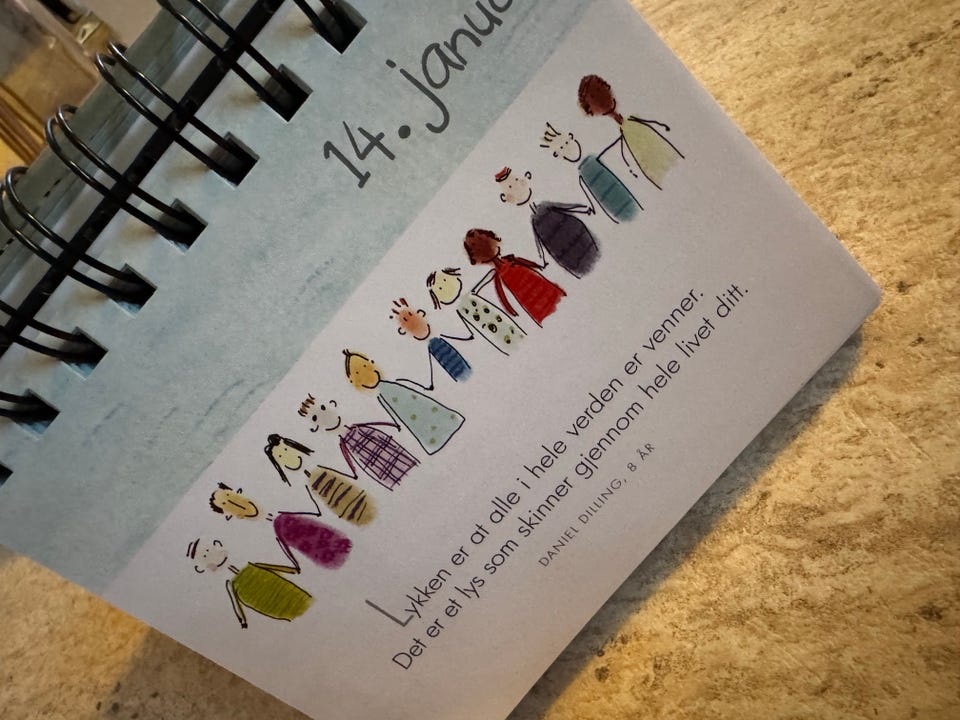 14. januar
Lykken er at alle i hele verden er venner.
Det er et lys som skinner gjennom hele livet ditt.
DANIEL DILLING, 8 ÅR